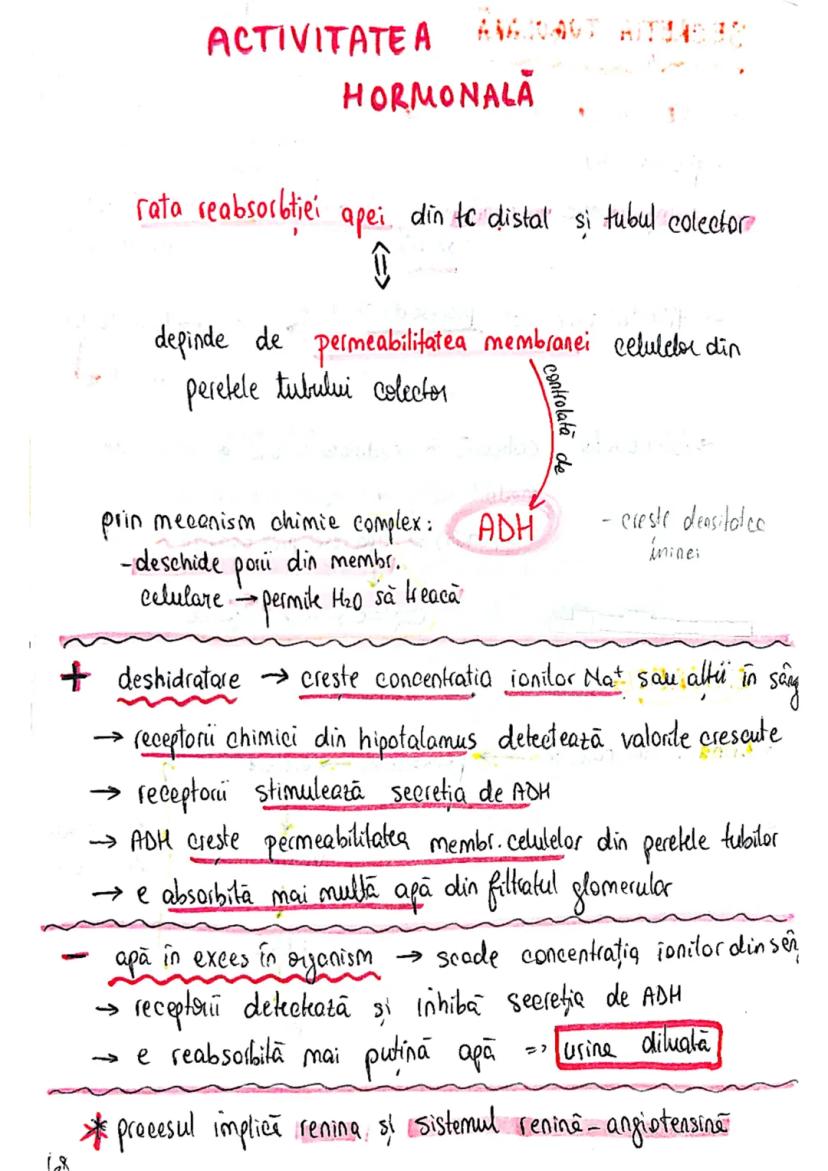 ACTIVITATEA
HORMONALĂ
rata reabsorbției apei din tc distal și tubul colector
depinde de permeabilitatea membranei celulelor din
peretele tubului colector
controlată de
prin mecanism chimic complex: ADH - crește densitatea
urinei
-deschide porii din membr.
celulare → permite H2O să treacă
+ deshidratare → creste concentratia ionilor Na+ sau alții în sâng
→ receptorii chimici din hipotalamus detectează valorile crescute
→ receptorii stimulează secreția de ADH
→ ADH crește permeabilitatea membr. celulelor din peretele tubilor
→ e absorbită mai multă apă din filtratul glomerular
- apă în exces în organism → scade concentrația ionilor din sân
→ receptorii detectează și inhibă secreția de ADH
→ e reabsorbită mai puțină apă => urine diluată
* procesul implică renina și sistemul renină-angiotensină